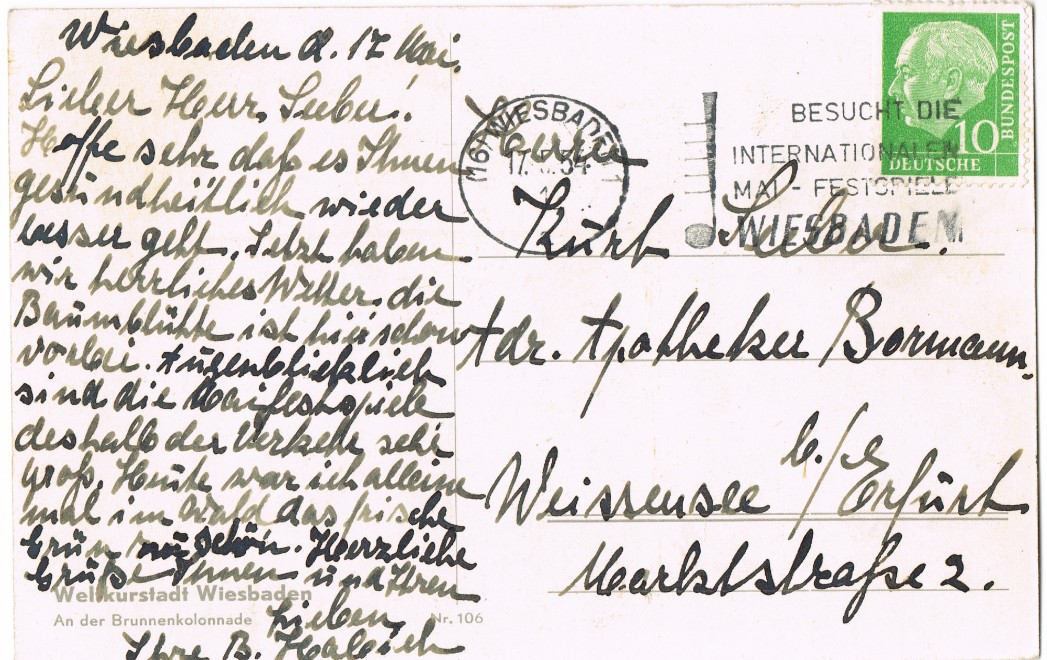 Wiesbaden d. 17 Mai.
Lieber Herr, Sieber!
Hoffe sehr daß es Ihnen
gesundheitlich wieder
besser geht, Jetzt haben
wir herrliches Wetter, die
Baumblühte ist hier schon
vorbei. Augenblicklich
sind die Maifestspiele
deshalb der Verkehr sehr
groß. Heute war ich alleine
mal im Wald das frische
Grün schön. Herzliche
Grüße Ihnen und Ihren
Lieben,
Ihre B.
Weltkurstadt Wiesbaden
An der Brunnenkolonnade
Nr. 106
WIESBADEN
17. 54
BESUCHT DIE
INTERNATIONALEN
MAI - FESTSPIELE
WIESBADEN
10
DEUTSCHE
BUNDESPOST
Herrn
Kurt Sieber.
Adr. Apotheker Bormann,
Weissensee b./Erfurt
Marktstraße 2.